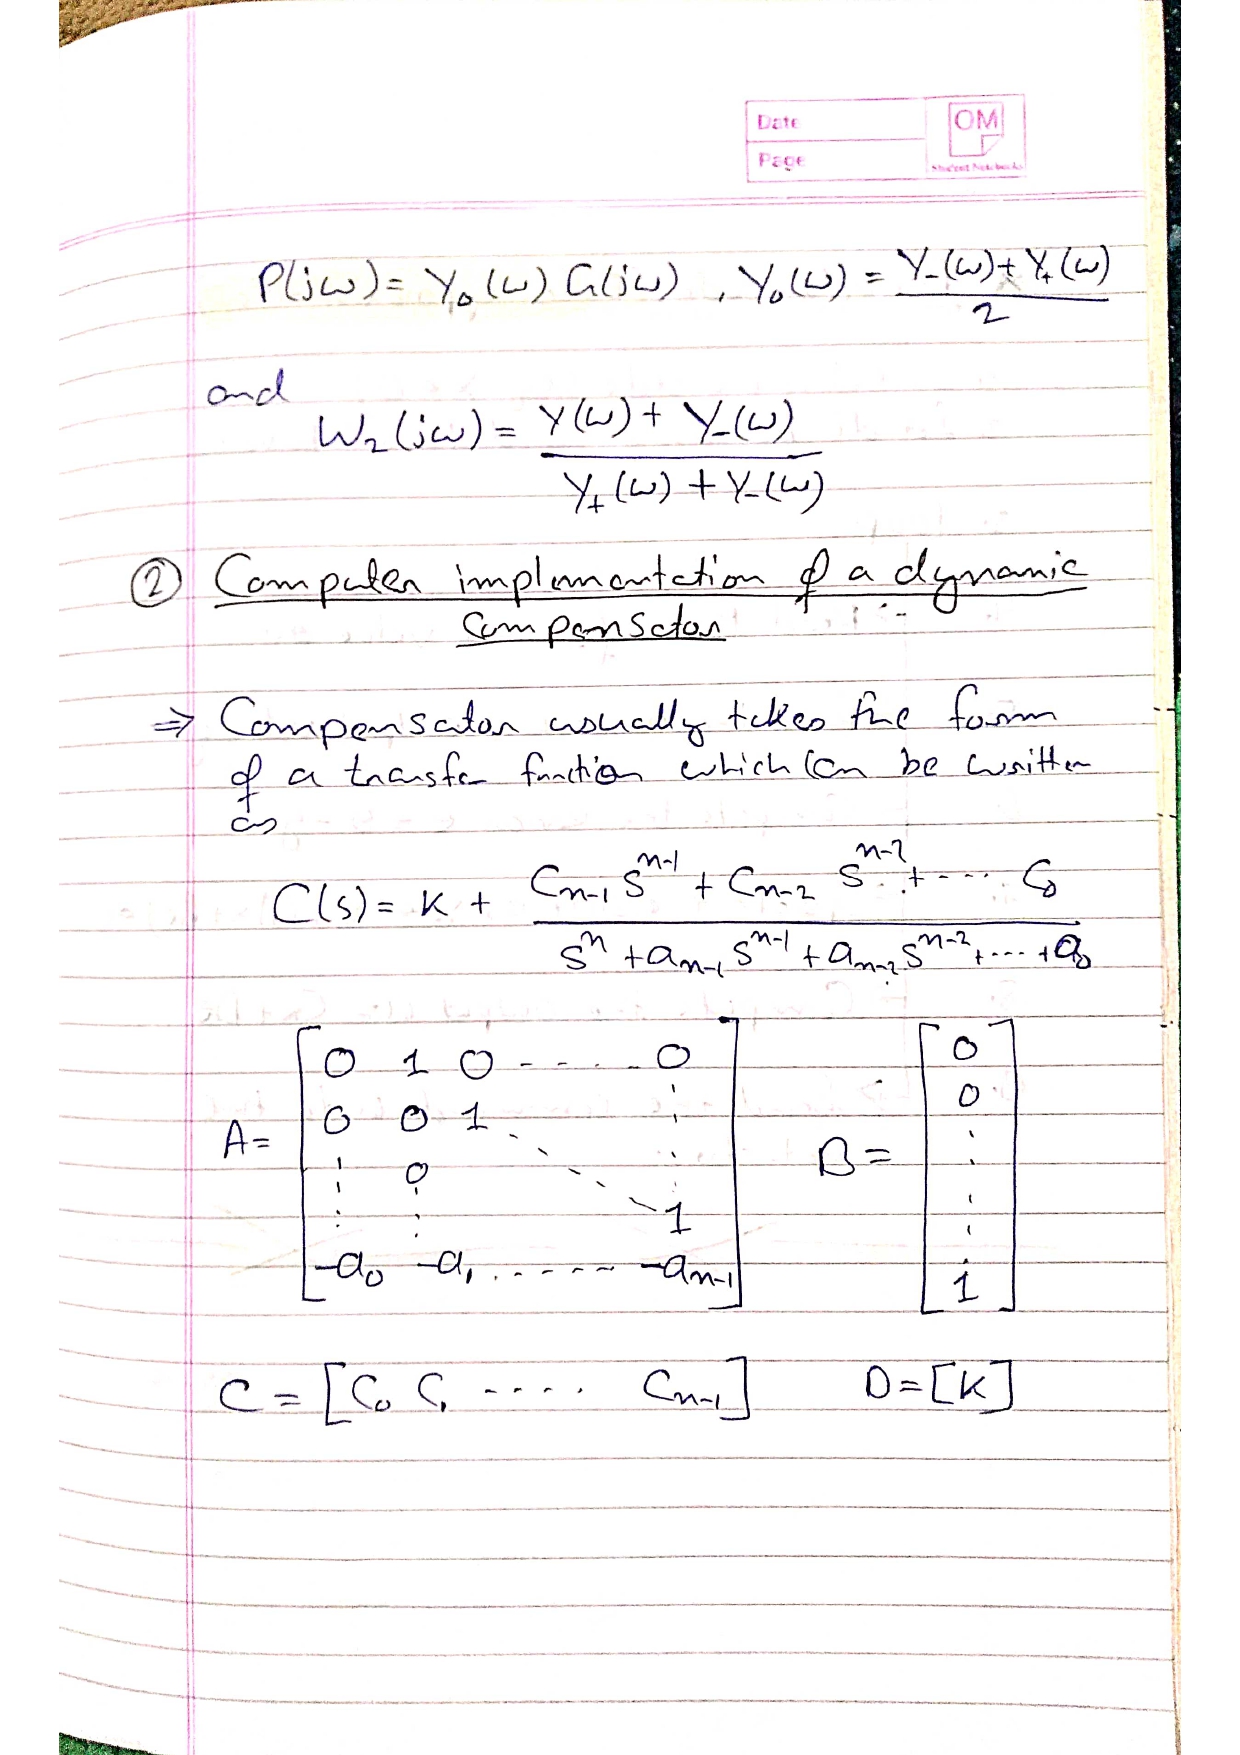 Date
Page
OM
Student Notebooks
P(jω) = Y₀(ω) G(jω) , Y₀(ω) = (Y₋(ω) + Y₊(ω)) / 2
and
W₂(jω) = (Y(ω) + Y₋(ω)) / (Y₊(ω) + Y₋(ω))
② Computer implementation of a dynamic
compensator
⇒ Compensator usually takes the form
of a transfer function which can be written
as
C(s) = K + (Cₙ₋₁ sⁿ⁻¹ + Cₙ₋₂ sⁿ⁻² + ---- C₀) / (sⁿ + aₙ₋₁ sⁿ⁻¹ + aₙ₋₂ sⁿ⁻² + ---- + a₀)
A = [0 1 0 ----- 0
0 0 1
0
1
-a₀ -a₁ ------ -aₙ₋₁]
B = [0
0
1]
C = [C₀ C₁ ----- Cₙ₋₁] D = [K]